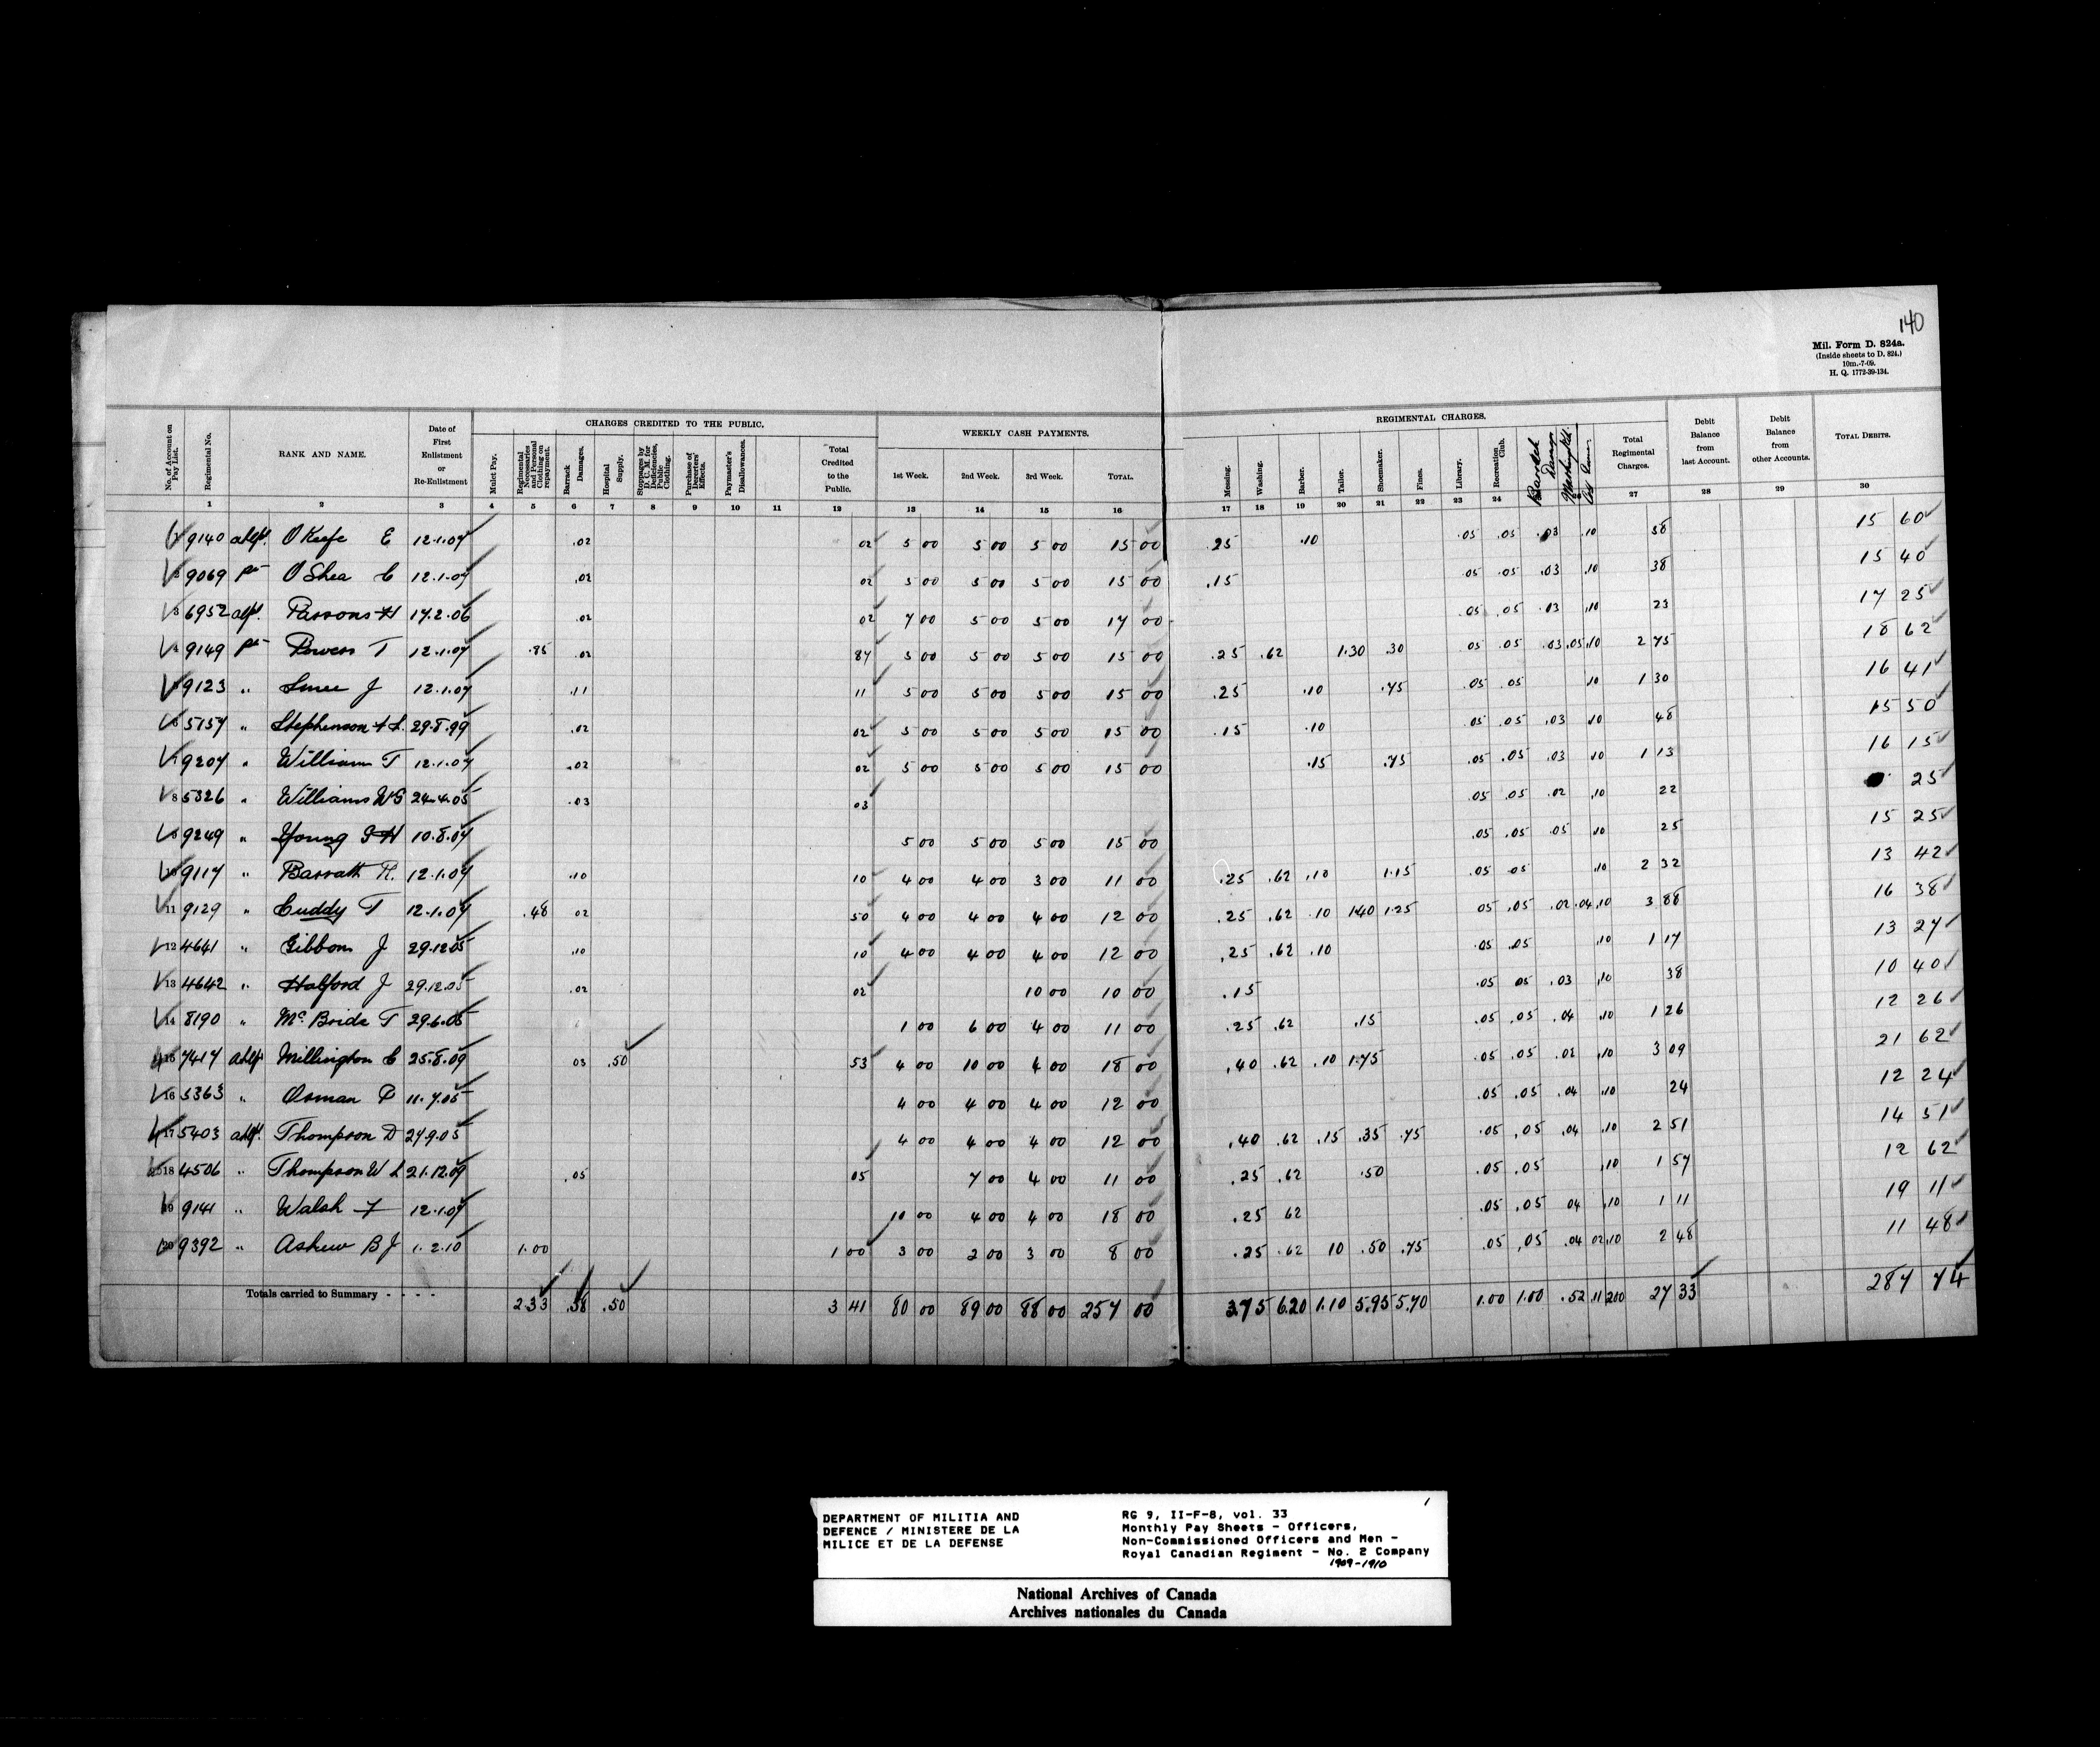 140
Mil. Form D. 824a.
(Inside sheets to D. 824.)
10m.-7-09.
H. Q. 1772-39-134.
No. of Account on Pay List. Regimental No. RANK AND NAME. Date of First Enlistment or Re-Enlistment CHARGES CREDITED TO THE PUBLIC. WEEKLY CASH PAYMENTS. REGIMENTAL CHARGES. Debit Balance from last Account. Debit Balance from other Accounts. TOTAL DEBITS.
Mulct Pay. Regimental Necessaries and Personal Clothing on repayment. Barrack Damages. Hospital Supply. Stoppages by D. U. A. for Deficiencies, Public Clothing. Purchase of Deserters' Effects. Paymaster's Disallowances. Total Credited to the Public. 1st Week. 2nd Week. 3rd Week. TOTAL. Messing. Washing. Barber. Tailor. Shoemaker. Fines. Library. Recreation Club. Barrack Damage Total Regimental Charges.
1 2 3 4 5 6 7 8 9 10 11 12 13 14 15 16 17 18 19 20 21 22 23 24 27 28 29 30
9140 O Keefe E 12.1.07 .02 02 5 00 5 00 5 00 15 00 .25 .10 .05 .05 .03 .10 58 15 60
2 9069 Pte O Shea C 12.1.07 .02 02 5 00 5 00 5 00 15 00 .15 .05 .05 .03 .10 38 15 40
3 6952 Parsons H 17.2.06 .02 02 7 00 5 00 5 00 17 00 .05 .05 .03 .10 23 17 25
4 9149 Pte Powers T 12.1.07 .85 .02 87 5 00 5 00 5 00 15 00 .25 .62 1.30 .30 05 .05 .03 .05 .10 2 75 18 62
5 9123 " Smee J 12.1.07 .11 11 5 00 5 00 5 00 15 00 .25 .10 .75 .05 .05 10 1 30 16 41
6 5757 " Stephenson 29.8.99 .02 02 5 00 5 00 5 00 15 00 .15 .10 .05 .05 .03 .10 48 15 50
7 9207 " William T 12.1.07 .02 02 5 00 5 00 5 00 15 00 .15 .75 .05 .05 .03 10 1 13 16 15
8 5326 " Williams W G 24.4.05 .03 03 .05 .05 .02 .10 22 25
9 9249 " Young G H 10.8.07 5 00 5 00 5 00 15 00 .05 .05 .05 .10 25 15 25
10 9117 " Barratt R. 12.1.07 .10 10 4 00 4 00 3 00 11 00 .25 .62 .10 1.15 .05 05 .10 2 32 13 42
11 9129 " Cuddy T 12.1.07 .48 02 50 4 00 4 00 4 00 12 00 .25 .62 .10 1.40 1.25 05 .05 .02 .04 .10 3 88 16 38
12 4641 " Gibbons J 29.12.05 .10 10 4 00 4 00 4 00 12 00 .25 .62 .10 .05 .05 .10 1 17 13 27
13 4642 " Halford J 29.12.05 .02 02 10 00 10 00 .15 .05 05 .03 .10 38 10 40
14 8190 " McBride T 29.6.05 1 00 6 00 4 00 11 00 .25 .62 .15 .05 .05 .04 .10 1 26 12 26
15 7417 Millington C 25.8.09 03 .50 53 4 00 10 00 4 00 18 00 .40 .62 .10 1.75 .05 .05 .02 .10 3 09 21 62
16 5363 " Osman P 11.7.05 4 00 4 00 4 00 12 00 .05 .05 .04 .10 24 12 24
17 5403 Thompson D 27.9.05 4 00 4 00 4 00 12 00 .40 .62 .15 .35 .75 .05 .05 .04 .10 2 51 14 51
18 4506 " Thompson W L 21.12.09 .05 05 7 00 4 00 11 00 .25 .62 .50 .05 .05 .10 1 57 12 62
19 9141 " Walsh F 12.1.07 10 00 4 00 4 00 18 00 .25 62 .05 .05 04 .10 1 11 19 11
20 9392 " Askew B J 1.2.10 1.00 1 00 3 00 2 00 3 00 8 00 .25 .62 10 .50 .75 .05 .05 .04 02 .10 2 48 11 48
Totals carried to Summary - - - - 2.33 .58 .50 3 41 80 00 89 00 88 00 257 00 3.75 6.20 1.10 5.95 5.70 1.00 1.00 .52 .11 2.00 27 33 287 74
1
DEPARTMENT OF MILITIA AND
DEFENCE / MINISTERE DE LA
MILICE ET DE LA DEFENSE
RG 9, II-F-8, vol. 33
Monthly Pay Sheets - Officers,
Non-Commissioned Officers and Men -
Royal Canadian Regiment - No. 2 Company
1909-1910
National Archives of Canada
Archives nationales du Canada